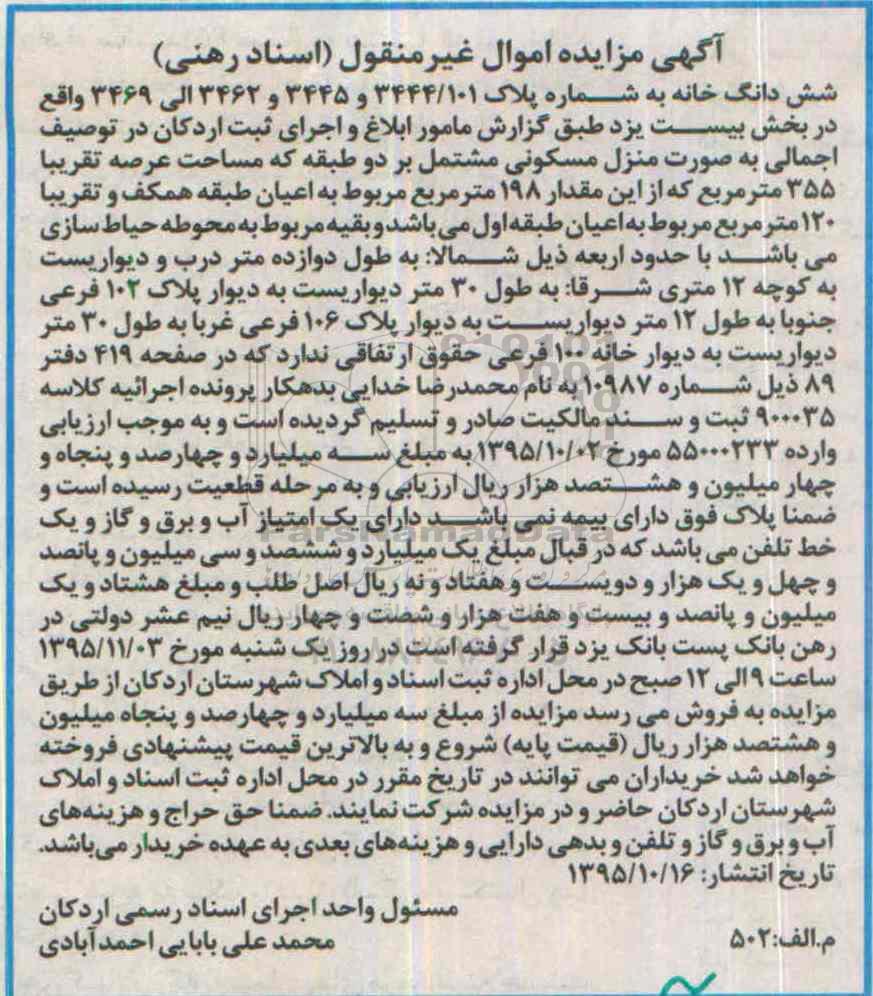 آگهی مزایده اموال غیرمنقول (اسناد رهنی)
شش دانگ خانه به شماره پلاک ۳۴۴۴/۱۰۱ و ۳۴۴۵ و ۳۴۶۲ الی ۳۴۶۹ واقع
در بخش بیست یزد طبق گزارش مامور ابلاغ و اجرای ثبت اردکان در توصیف
اجمالی به صورت منزل مسکونی مشتمل بر دو طبقه که مساحت عرصه تقریبا
۳۵۵ مترمربع که از این مقدار ۱۹۸ مترمربع مربوط به اعیان طبقه همکف و تقریبا
۱۲۰ مترمربع مربوط به اعیان طبقه اول می باشد و بقیه مربوط به محوطه حیاط سازی
می باشد با حدود اربعه ذیل شمالا: به طول دوازده متر درب و دیواریست
به کوچه ۱۲ متری شرقا: به طول ۳۰ متر دیواریست به دیوار پلاک ۱۰۲ فرعی
جنوبا به طول ۱۲ متر دیواریست به دیوار پلاک ۱۰۶ فرعی غربا به طول ۳۰ متر
دیواریست به دیوار خانه ۱۰۰ فرعی حقوق ارتفاقی ندارد که در صفحه ۴۱۹ دفتر
۸۹ ذیل شماره ۱۰۹۸۷ به نام محمدرضا خدایی بدهکار پرونده اجرائیه کلاسه
۹۰۰۰۳۵ ثبت و سند مالکیت صادر و تسلیم گردیده است و به موجب ارزیابی
وارده ۵۵۰۰۰۲۳۳ مورخ ۱۳۹۵/۱۰/۰۲ به مبلغ سه میلیارد و چهارصد و پنجاه و
چهار میلیون و هشتصد هزار ریال ارزیابی و به مرحله قطعیت رسیده است و
ضمنا پلاک فوق دارای بیمه نمی باشد دارای یک امتیاز آب و برق و گاز و یک
خط تلفن می باشد که در قبال مبلغ یک میلیارد و ششصد و سی میلیون و پانصد
و چهل و یک هزار و دویست و هفتاد و نه ریال اصل طلب و مبلغ هشتاد و یک
میلیون و پانصد و بیست و هفت هزار و شصت و چهار ریال نیم عشر دولتی در
رهن بانک پست بانک یزد قرار گرفته است در روز یک شنبه مورخ ۱۳۹۵/۱۱/۰۳
ساعت ۹ الی ۱۲ صبح در محل اداره ثبت اسناد و املاک شهرستان اردکان از طریق
مزایده به فروش می رسد مزایده از مبلغ سه میلیارد و چهارصد و پنجاه میلیون
و هشتصد هزار ریال (قیمت پایه) شروع و به بالاترین قیمت پیشنهادی فروخته
خواهد شد خریداران می توانند در تاریخ مقرر در محل اداره ثبت اسناد و املاک
شهرستان اردکان حاضر و در مزایده شرکت نمایند. ضمنا حق حراج و هزینه‌های
آب و برق و گاز و تلفن و بدهی دارایی و هزینه‌های بعدی به عهده خریدار می‌باشد.
تاریخ انتشار: ۱۳۹۵/۱۰/۱۶
مسئول واحد اجرای اسناد رسمی اردکان
محمد علی بابایی احمدآبادی
م.الف:۵۰۲
ParsNamadData